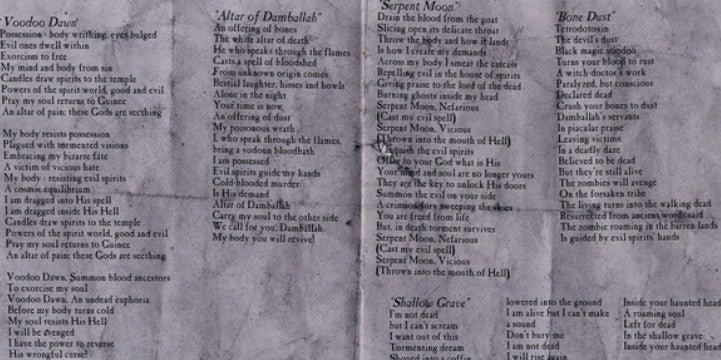 "Voodoo Dawn"
Possession - body writhing, eyes bulged
Evil ones dwell within
Exorcism to free
My mind and body from sin
Candles draw spirits to the temple
Powers of the spirit world, good and evil
Pray my soul returns to Guinee
An altar of pain; these Gods are seething
My body resists possession
Plagued with tormented visions
Embracing my bizarre fate
A victim of vicious hate
My body - resisting evil spirits
A cosmic equilibrium
I am dragged into His spell
I am dragged inside His Hell
Candles draw spirits to the temple
Powers of the spirit world, good and evil
Pray my soul returns to Guinee
An altar of pain; these Gods are seething
Voodoo Dawn, Summon blood ancestors
To exorcise my soul
Voodoo Dawn, An undead euphoria
Before my body turns cold
My soul resists His Hell
I will be avenged
I have the power to reverse
His wrongful curse!
"Altar of Damballah"
An offering of bones
The white altar of death
He who speaks through the flames
Casts a spell of bloodshed
From unknown origin comes
Bestial laughter, hisses and howls
Alone in the night
Your time is now
An offering of dust
My poisonous wrath
I, who speak through the flames,
bring a vodoun bloodbath
I am possessed
Evil spirits guide my hands
Cold-blooded murder
Is His demand
Altar of Damballah
Carry my soul to the other side
We call for you, Damballah
My body you will revive!
"Serpent Moon"
Drain the blood from the goat
Slicing open its delicate throat
Throw the body and how it lands
Is how I create my demands
Across my body I smear the carcass
Repelling evil in the house of spirits
Giving praise to the lord of the dead
Burning ghosts inside my head
Serpent Moon, Nefarious
(Cast my evil spell)
Serpent Moon, Vicious
(Thrown into the mouth of Hell)
Vanquish the evil spirits
Offer to your God what is His
Your mind and soul are no longer yours
They are the key to unlock His doors
Summon the evil on your side
A crimson fury sweeping the skies
You are freed from life
But, in death torment survives
Serpent Moon, Nefarious
(Cast my evil spell)
Serpent Moon, Vicious
(Thrown into the mouth of Hell)
"Bone Dust"
Tetrodotoxin
The devil's dust
Black magic voodoo
Turns your blood to rust
A witch-doctor's work
Paralyzed, but conscious
Declared dead
Crush your bones to dust
Damballah's servants
In piacular praise
Leaving victims
In a deadly daze
Believed to be dead
But they're still alive
The zombies will avenge
On the forsaken tribe
The living turns into the walking dead
Resurrected from ancient words said
The zombie roaming in the barren lands
Is guided by evil spirits' hands
"Shallow Grave"
I'm not dead
but I can't scream
I want out of this
Tormenting dream
Shoved into a coffin
lowered into the ground
I am alive but I can't make
a sound
Don't bury me
I am not dead
I will rise again
Inside your haunted head
A roaming soul
Left for dead
In the shallow grave
Inside your haunted head